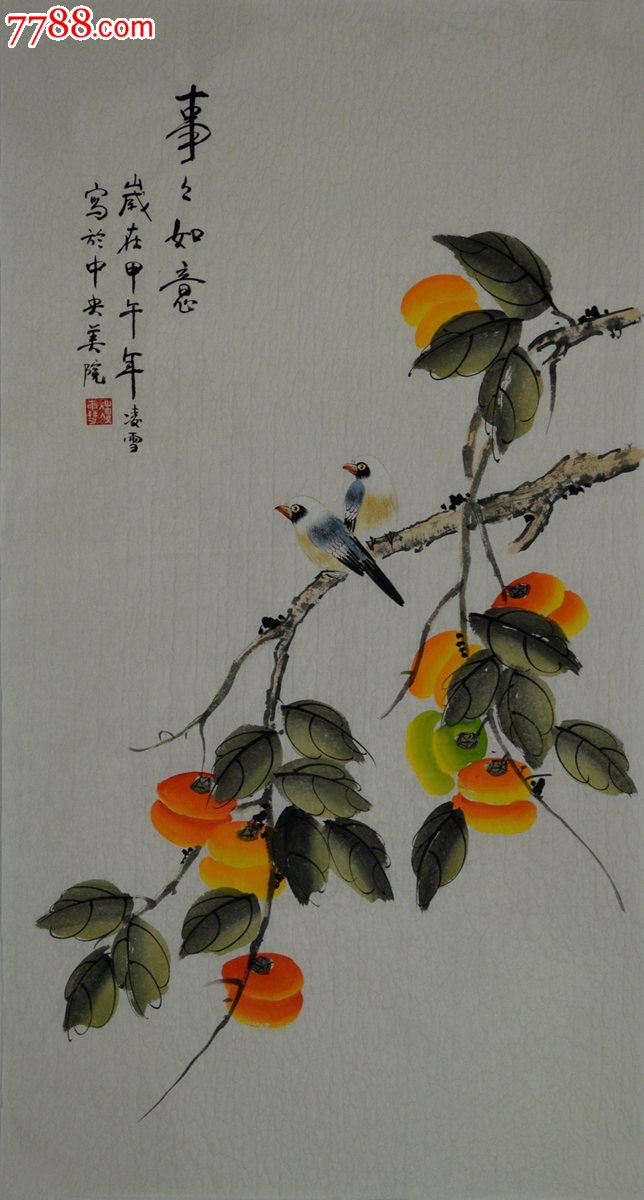 7788.com
事々如意
歲在甲午年凌雪
寫於中央美院